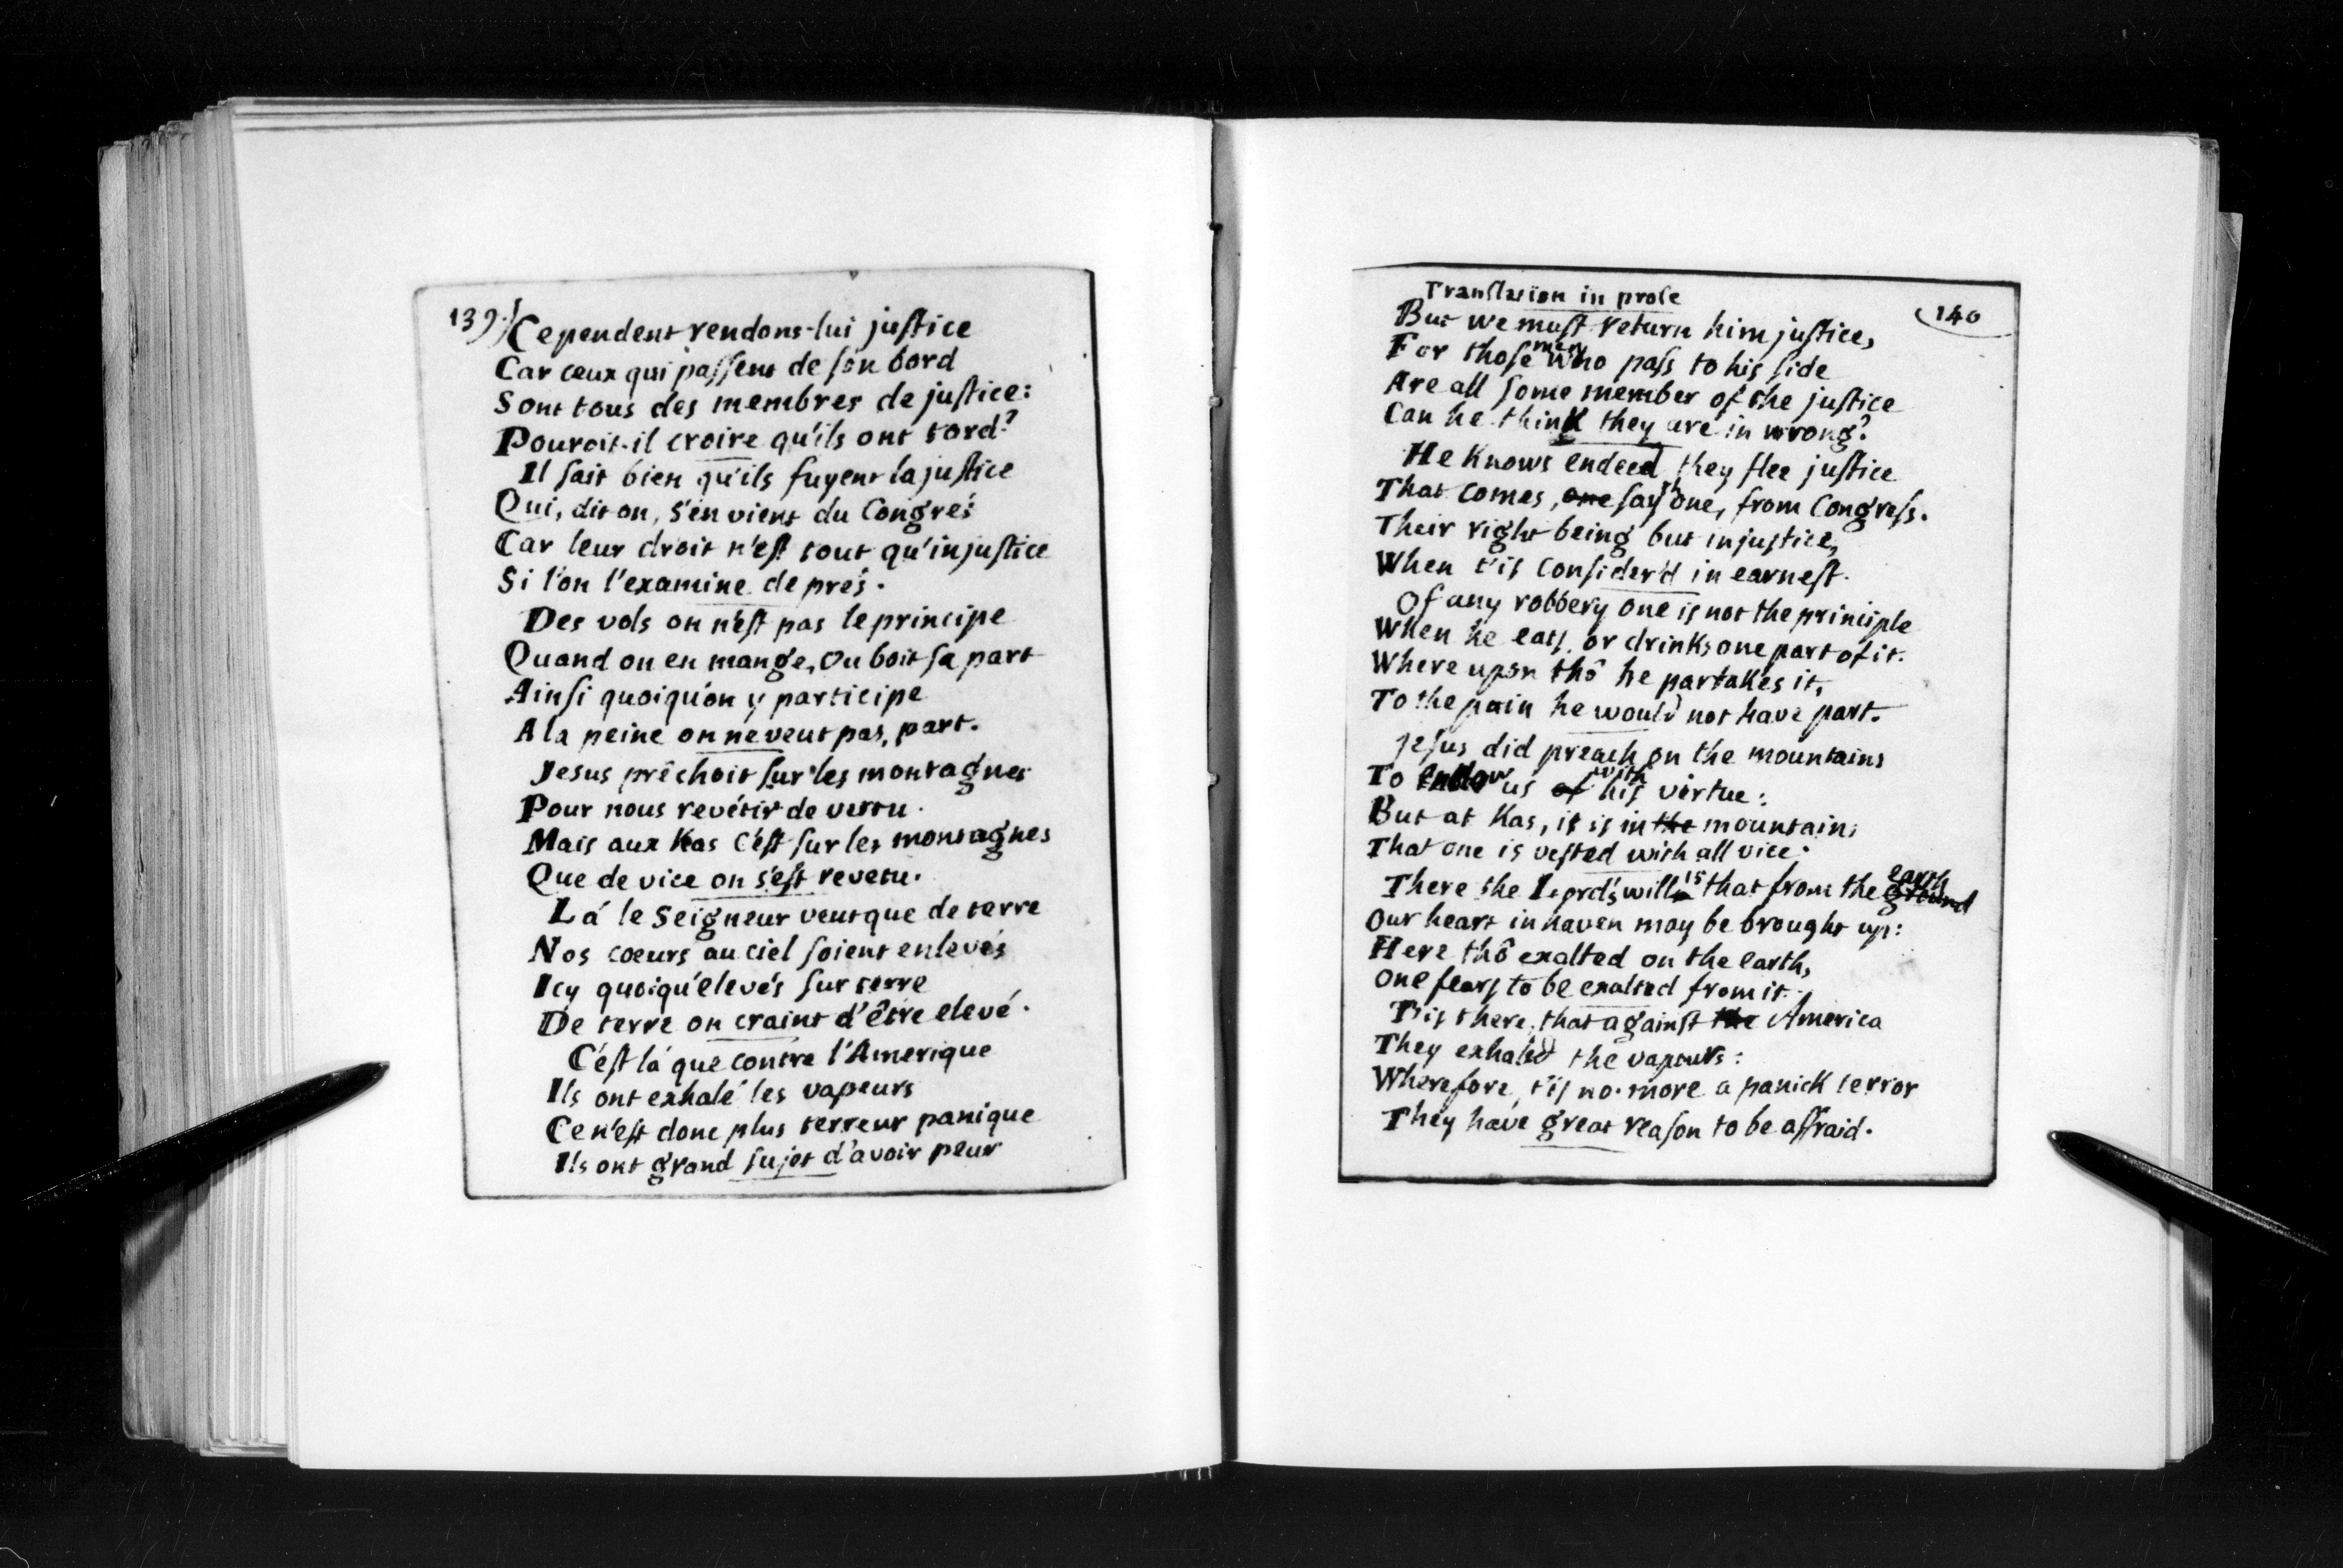 139)
Cependent rendons-lui justice
Car ceux qui passent de son bord
Sont tous des membres de justice:
Pouroit-il croire qu'ils ont tord?
Il sait bien qu'ils fuyent la justice
Qui, dit on, s'en vient du Congrés
Car leur droit n'est tout qu'injustice
Si l'on l'examine de prés.
Des vols on n'est pas le principe
Quand on en mange, ou boit sa part
Ainsi quoiqu'on y participe
A la peine on ne veut pas, part.
Jesus prêchoit sur les montagnes
Pour nous revétir de vertu.
Mais aux Kas c'est sur les montagnes
Que de vice on s'est revetu.
Lá le Seigneur veut que de terre
Nos coeurs au ciel soient enlevés
Icy quoiqu'élevés sur terre
De terre on craint d'être elevé.
C'est lá que contre l'Amerique
Ils ont exhalé les vapeurs
Ce n'est donc plus terreur panique
Ils ont grand sujet d'avoir peur
140
Translation in prose
But we must return him justice,
For those men who pass to his side
Are all some member of the justice
Can he think they are in wrong?
He Knows endeed they flee justice
That comes, one say's one, from Congress.
Their right being but injustice,
When t'is consider'd in earnest.
Of any robbery one is not the principle
When he eats, or drinks one part of it.
Where upon thô he partakes it,
To the pain he would not have part.
Jesus did preach on the mountains
To endow us of with his virtue:
But at Kas, it is in the mountains
That one is vested with all vice.
There the Lord's will is that from the ground earth
Our heart in haven may be brought up:
Here thô exalted on the earth,
One fears to be exalted from it.
T'is there, that against the America
They exhaled the vapours:
Wherefore, t'is no more a panick terror
They have great reason to be affraid.